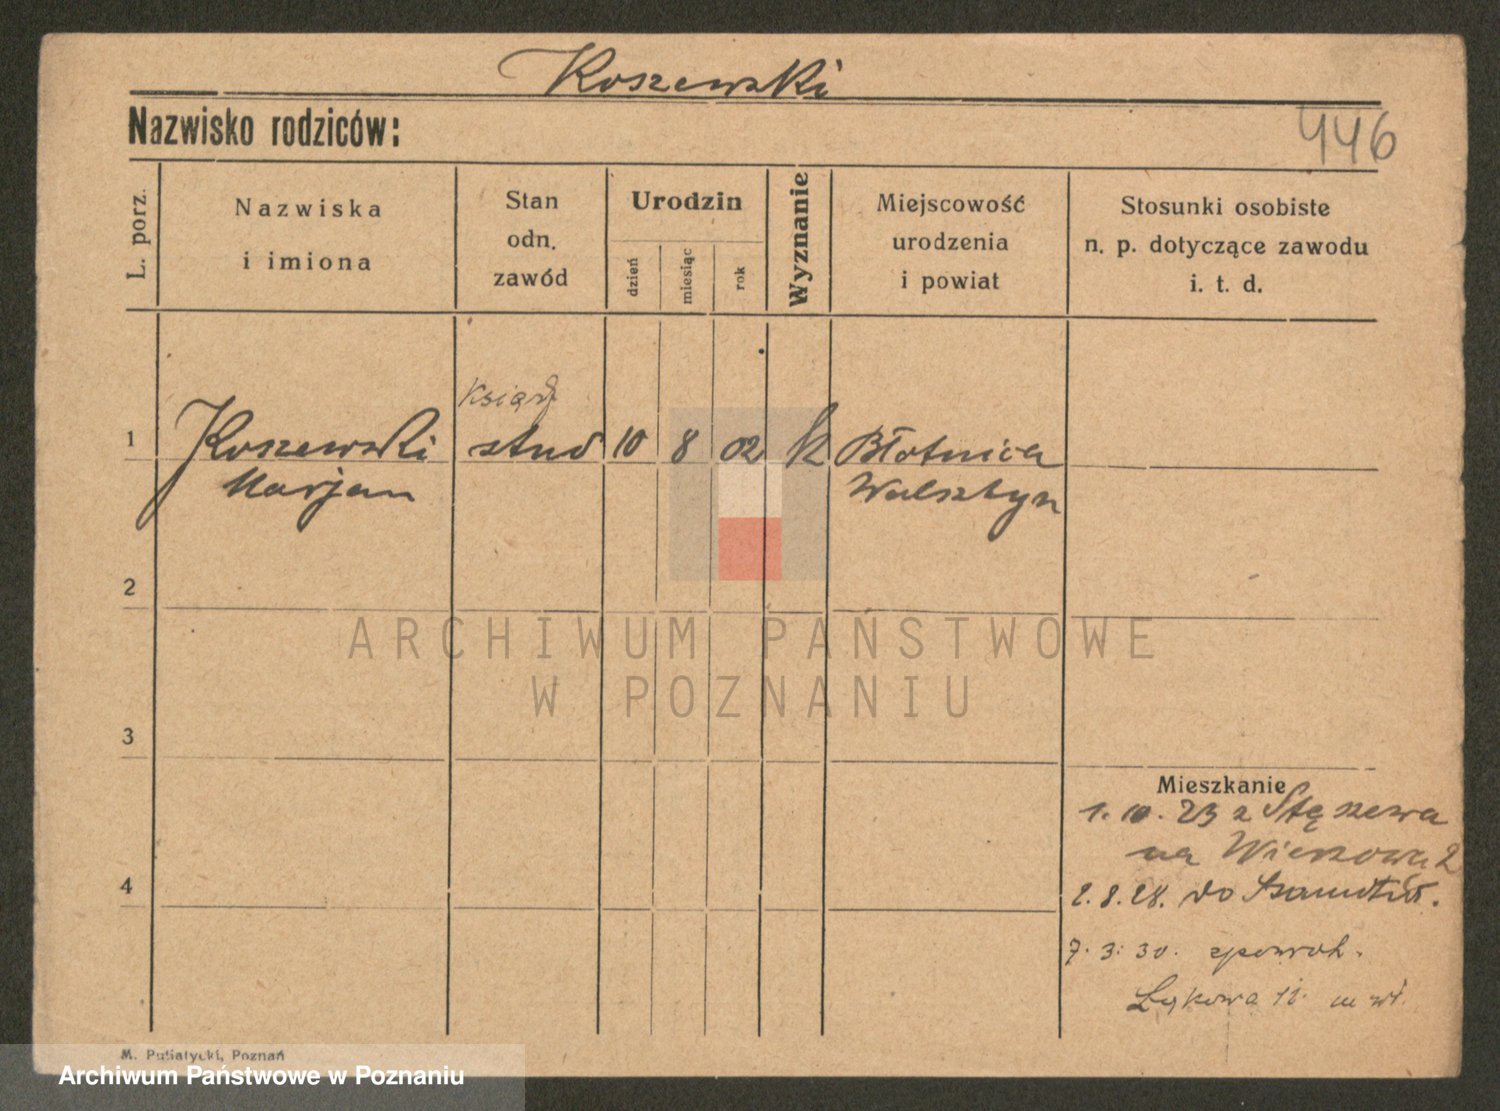 Koszewski
Nazwisko rodziców:
446
L. porz.
Nazwiska
i imiona
Stan
odn.
zawód
Urodzin
dzień
miesiąc
rok
Wyznanie
Miejscowość
urodzenia
i powiat
Stosunki osobiste
n. p. dotyczące zawodu
i. t. d.
ksiądz
1 Koszewski stud 10 8 02 k Błotnica
Marjan Wolsztyn
2
ARCHIWUM PAŃSTWOWE
W POZNANIU
3
Mieszkanie
1. 10. 23 z Stęszewa
na
4
2. 8. 28. do Szamotuł.
7. 3. 30. zpowrot.
Łąkowa 11.
M. Putiatycki, Poznań
Archiwum Państwowe w Poznaniu